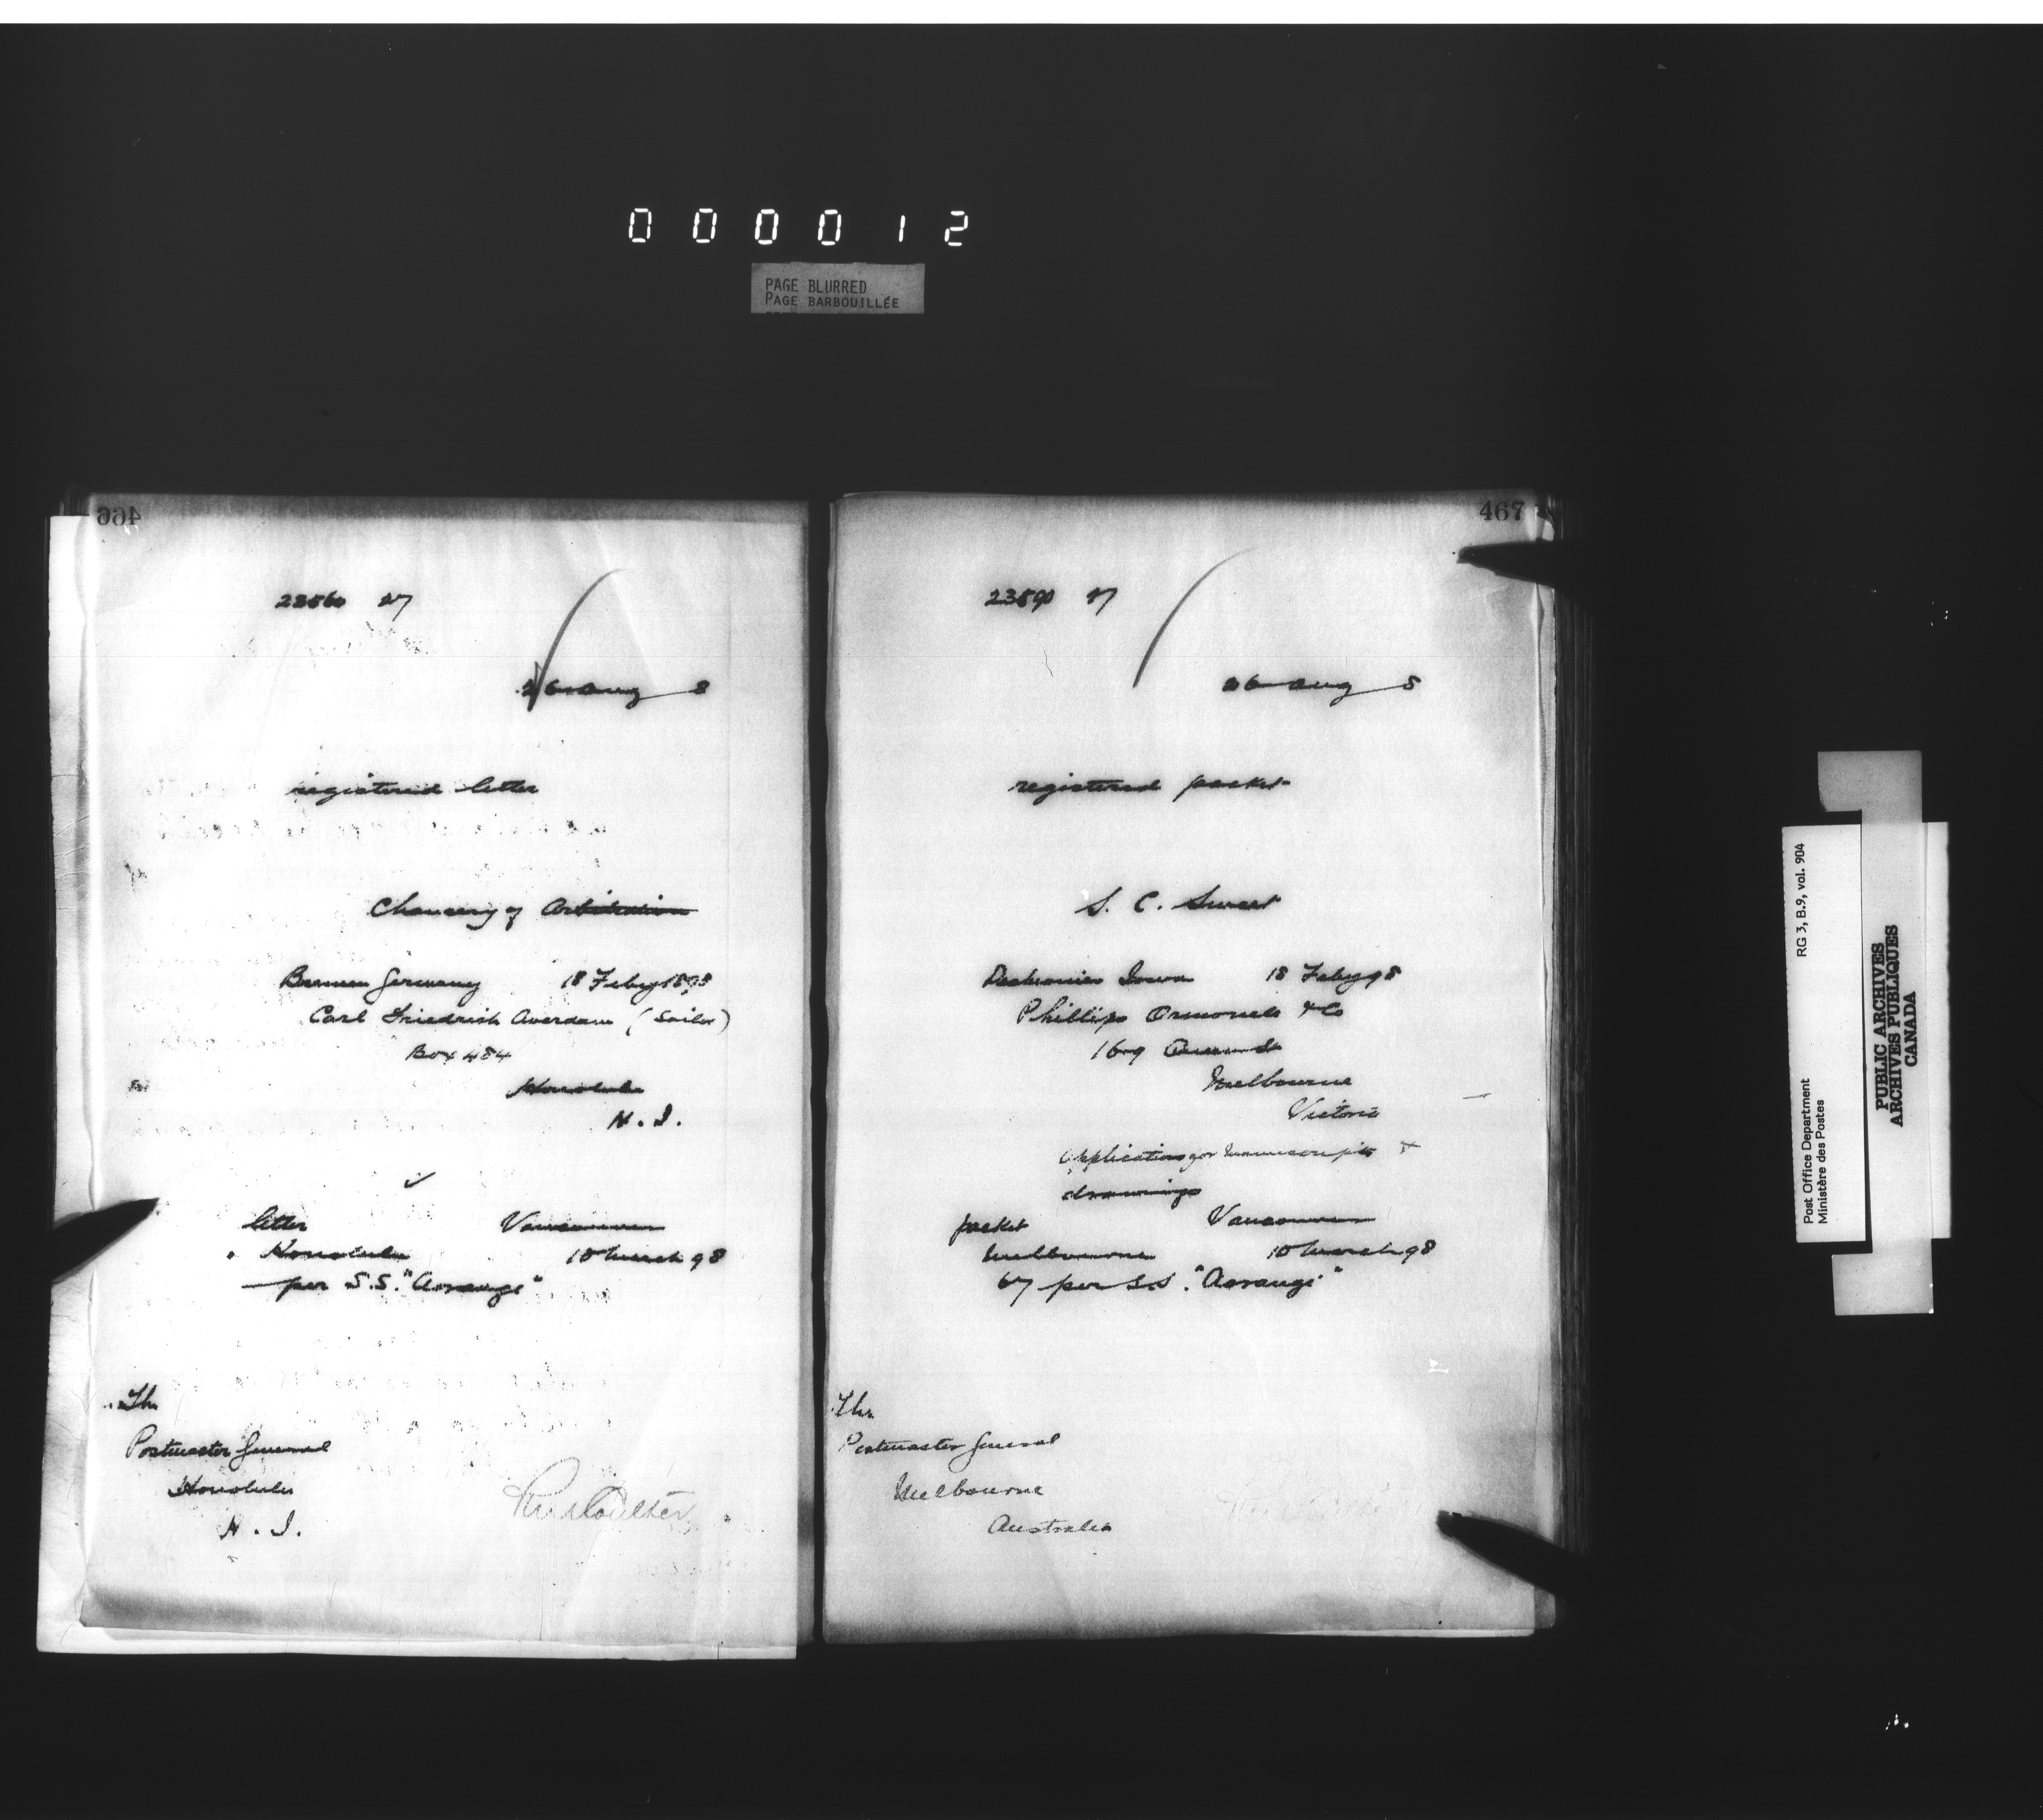 000012
PAGE BLURRED
PAGE BARBOUILLÉE
466
23560 27
26 Aug 8
registered letter
Chancery of Arbitration
Bremen Germany 18 Feby 1898
Carl Friedrich Averdam (Sailor)
Box 484
Honolulu
H. I.
letter Vancouver
Honolulu 10 March 98
per S.S. "Aorangi"
The
Postmaster General
Honolulu
H. I.
467
23590 27
26 Aug 8
registered packet
S. C. Sweet
Desmoines Iowa 18 Feby 98
Phillips Ormonde & Co
169 Queen St
Melbourne
Victoria
Application for manuscripts &
drawings
packet Vancouver
Melbourne 10 March 98
67 per S.S. "Aorangi"
The
Postmaster General
Melbourne
Australia
RG 3, B.9, vol. 904
Post Office Department
Ministère des Postes
PUBLIC ARCHIVES
ARCHIVES PUBLIQUES
CANADA